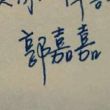 郭嘉嘉